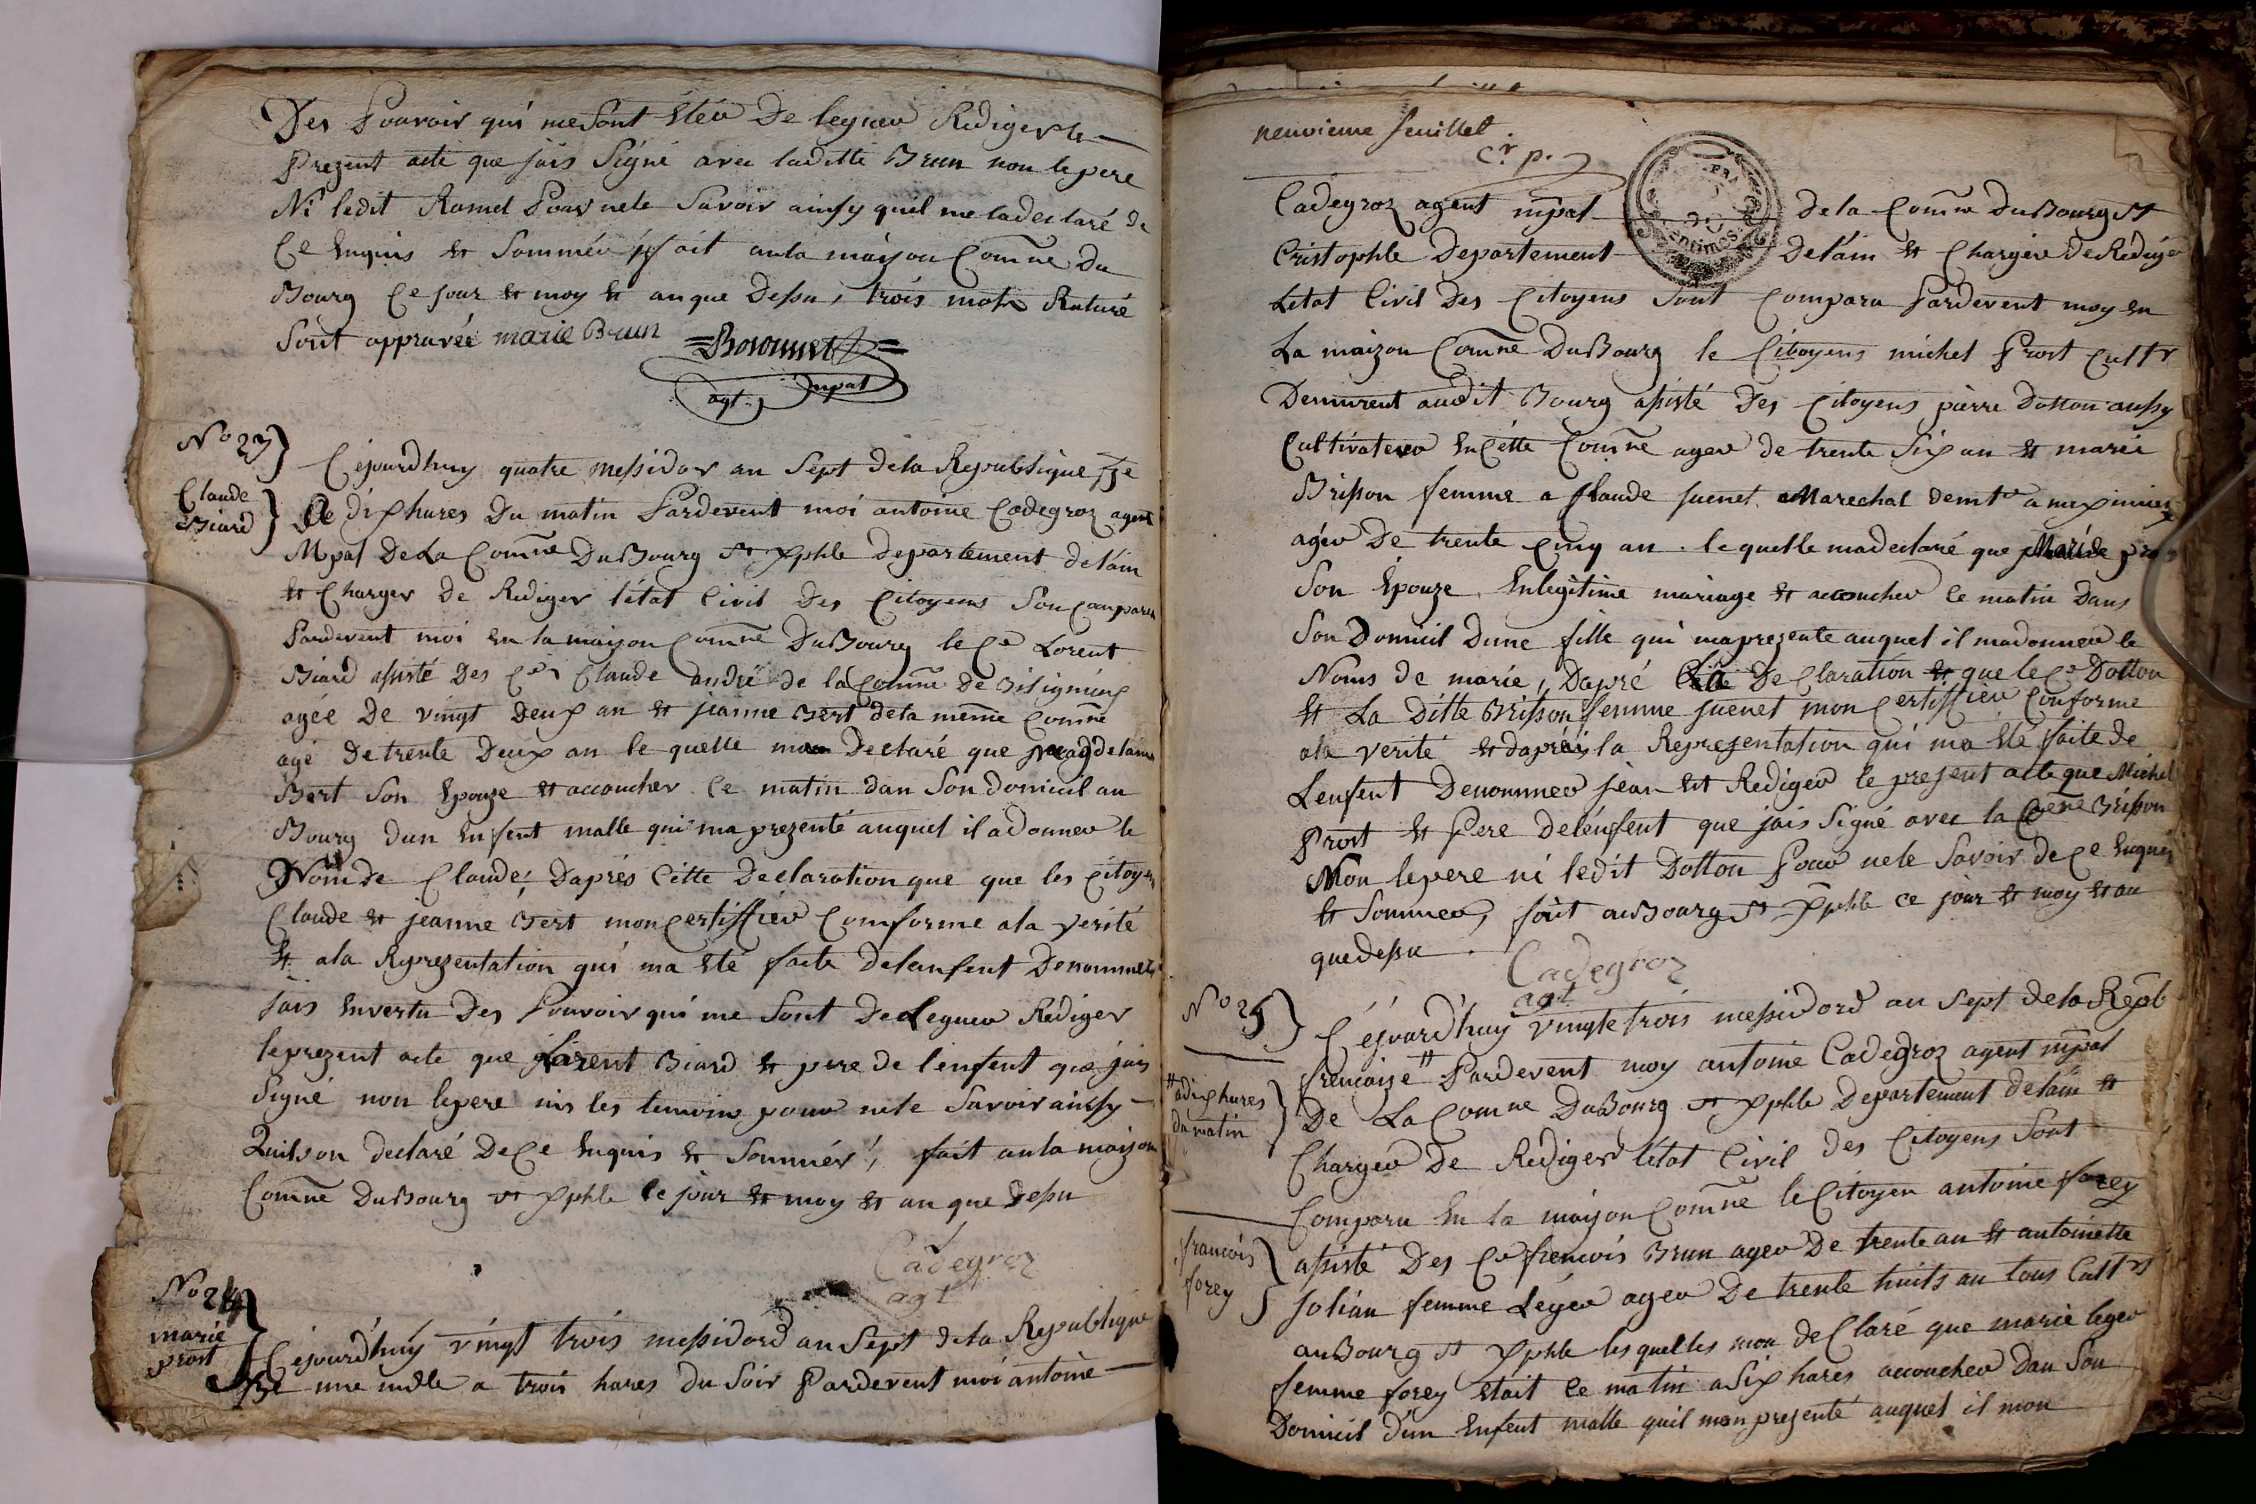 Des Pouvoir qui me sont Eteér De legueér Rediger le
Prezent acte que jais Signé avec laditte Brun non le pere
Ni ledit Ramel Pour nete Savoir ainsy quil me la declaré de
Ce Enquis et Somméer fait aula maison Comñe Du
Bourg Ce jour et moy et an que Dessu, trois mots Raturé
Sont appruvéé marie Brun
agt. mpal
No 23
Claude
Biard
Cejourdhuy quatre Messidor an Sept dela Republique fse
A dix hures Du matin Pardevent moi antoine Cadegroz agent
Mpal De La Comñe Du Bourg st Xphle Departement de lain
et Charger de Rediger létat Civil Des Citoyens Son Comparu
Pardevent moi En la maison Comñe Du Bourg le Cen Lorent
Biard assisté Des Cens Claude andre de la Comñe de Bilignieux
agée De vingt Deux an et jeanne Bert dela même Comñe
agé De trente Deux an le quelle ma Declaré que magdelaine
Bert Son Epouze et accoucher Ce matin dan Son domicil au
Bourg dun Enfent malle qui ma prezenté auquel il adonneér le
Nom de Claude; Daprés Cette Declaration que que les Citoyen
Claude et jeanne Bert mon Certiffieér Comforme ala verité
et ala Reprezentation qui ma Eté faite delenfent Denommeér
jais Envertu Des Pouvoir qui me Sont De Legueér Rediger
le prezent acte que Lorent Biard et pere de l'enfent que jais
Signé non lepere nis les temoins pour nete Savoir ainsy
Quils on declaré De Ce Enquis et Sommér, fait aula maison
Comñe Du Bourg st Xphle Ce jour et moy et an que Dessu
Cadegroz
agt
No 24
marie
prost
Cejourd'huy vingt trois messidord an Sept dela Republique
fse une indle a trois hures du Soir Pardevent moi antoine
neuvieme feuillet.
Cr. p.
Cadegroz agent mpal De la Comñe Du Bourg st
Cristophle Departement De lain et Chargéer De Rediger
Létat Civil Des Citoyens Sont Comparu Pardevent moy En
La maizon Comñe Du Bourg le Citoyens michel Prost Cultr
Demurent audit Bourg assisté Des Citoyens piérre Dotton aussy
Cultivateur En Cétte Comñe ageér de trente Six an et mariée
Brisson femme a Claude juenet Marechal demtr a meximieux
agéer De trente Cinq an. le quelle ma declaré que Marie pros
Son Epouze En legitime mariage et accoucher Ce matin Dans
Son Domicil Dune fille qui ma prezente auquel il madonneér le
Noms de marie, Dapré la De Claration que le Cen Dotton
et La Ditte Brisson femme juenet mon Certiffieér Conforme
ala verité et daprés la Reprezentation qui ma Eté faite de
Lenfent Denommeér jean Et Redigéer le prezent acte que Michel
Prost et Pere delénfent que jais Signé avec la Cene Brisson
Non lepere ni ledit Dotton Pour nete Savoir de Ce Enquis
et Sommeér, fait au Bourg st Xphle Ce jour et moy et an
que dessu.
Cadegroz
agt
No 25
a dix hures
du matin
francois
forey
Céjourd'huy vingte trois messidord an Sept dela Repbl
frencaize Pardevent moy antoine Cadegroz agent mpal
De La Comñe Du Bourg st Xphle Departement de lain et
Chargeér De Rediger létat Civil Des Citoyens Sont
Comparu En la maison Comñe le Citoyen antoine forey
assisté Des Cen frencois Brun ageér De trente an et antoinette
jolian femme Légeér ageér De trente huits an tous Cultrs
au Bourg st Xphle lesquelles mon deClaré que marie legeér
femme forey était Ce matin a Six hures accoucheér dan Son
Domicil d'un Enfent malle quil mon prezenté auquel il mon